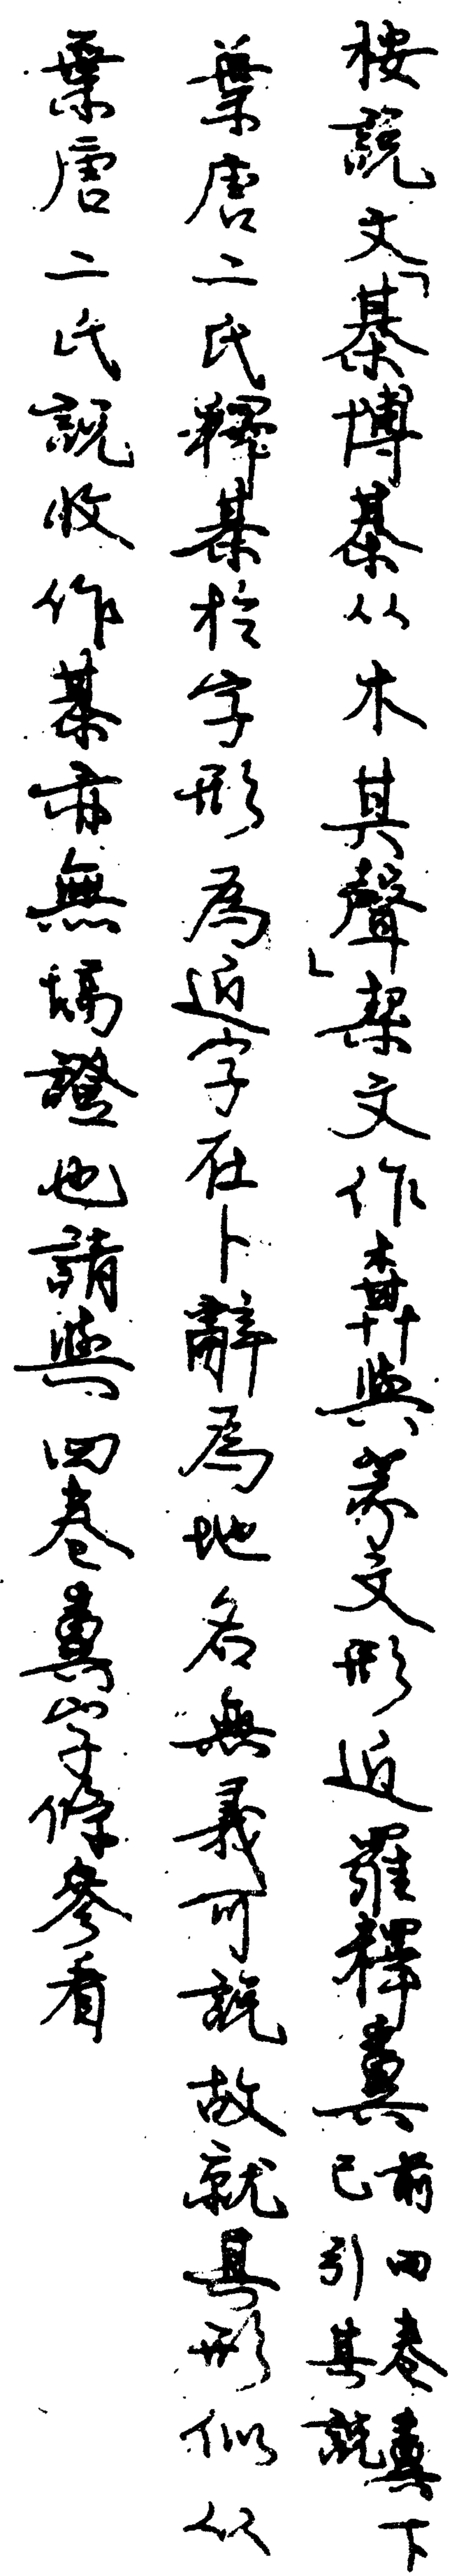 桉說文「棊博棊从木其聲」栔文作與篆文形近羅釋糞前四卷糞下已引其說
葉唐二氏釋棊於字形為近字在卜辭為地名無義可說故就其形似从
葉唐二氏說收作棊亦無塙證也請與四卷糞字條參看